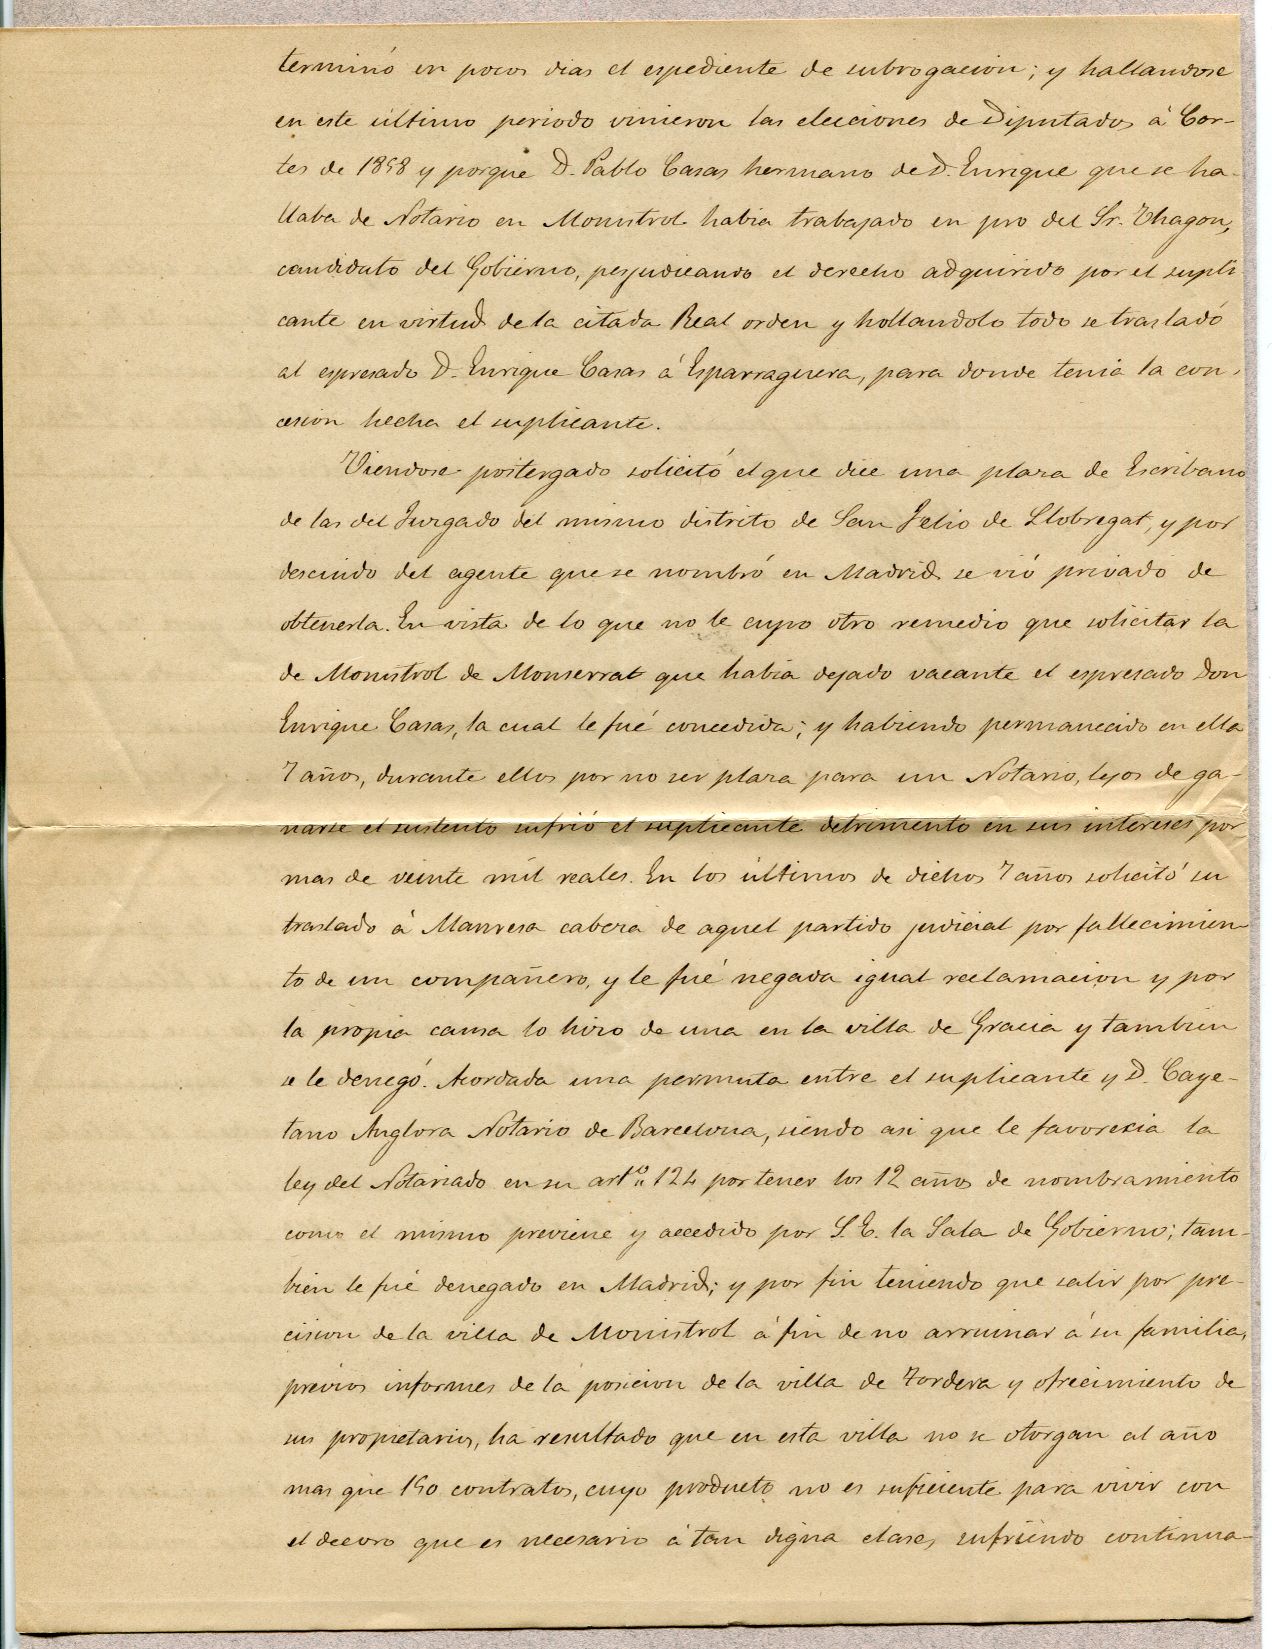 terminó en pocos dias el espediente de subrogacion; y hallandose
en este último periodo vinieron las elecciones de Diputados á Cor-
tes de 1858 y porque D. Pablo Casas hermano de D. Enrique que se ha-
llaba de Notario en Monistrol habia trabajado en pro del Sr. Thagon,
candidato del Gobierno, perjudicando el derecho adquirido por el supli
cante en virtud de la citada Real orden y hollandolo todo se trasladó
al espresado D. Enrique Casas á Esparraguera, para donde tenia la con-
cesion hecha el suplicante.
Viendose postergado solicitó el que dice una plaza de Escribano
de las del Juzgado del mismo distrito de San Felio de Llobregat, y por
descuido del agente que se nombró en Madrid se vió privado de
obtenerla. En vista de lo que no le cupo otro remedio que solicitar la
de Monistrol de Monserrat que habia dejado vacante el espresado Don
Enrique Casas, la cual le fué concedida; y habiendo permanecido en ella
7 años, durante ellos por no ser plaza para un Notario, lejos de ga-
narse el sustento sufrió el suplicante detrimento en sus intereses por
mas de veinte mil reales. En los últimos de dichos 7 años solicitó su
traslado á Manresa cabeza de aquel partido judicial por fallecimien
to de un compañero, y le fué negada igual reclamacion y por
la propia causa lo hizo de una en la villa de Gracia y tambien
se le denegó. Acordada una permuta entre el suplicante y D. Caye-
tano Anglora Notario de Barcelona, siendo asi que le favorecia la
ley del Notariado en su artº 124 por tener los 12 años de nombramiento
como el mismo previene y accedido por S. E. la Sala de Gobierno; tam-
bien le fué denegado en Madrid; y por fin teniendo que salir por pre-
cision de la villa de Monistrol á fin de no arruinar á su familia,
prévios informes de la posicion de la villa de Tordera y ofrecimiento de
sus propietarios, ha resultado que en esta villa no se otorgan al año
mas que 150 contratos, cuyo producto no es suficiente para vivir con
el decoro que es necesario á tan digna clase, sufriendo continua-